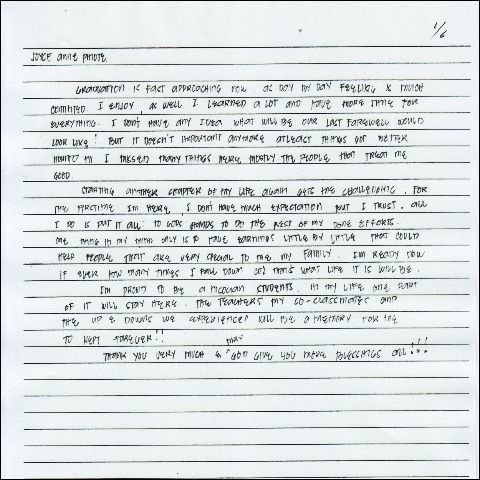 1/6
JOYCE ANNE
GRADUATION IS FAST APPROACHING NOW. AS DAY BY DAY FEELING IS MUCH
EXCITED. I ENJOY AS WELL I LEARNED A LOT AND HAVE MORE TIME FOR
EVERYTHING. I DON'T HAVE ANY IDEA WHAT WILL BE OUR LAST FAREWELL WOULD
LOOK LIKE! BUT IT DOESN'T IMPORTANT ANYMORE ATLEAST THINGS GOT BETTER
I MISSED MANY THINGS HERE, MOSTLY THE PEOPLE THAT TREAT ME
GOOD.
STARTING ANOTHER CHAPTER OF MY LIFE AGAIN GETS THE CHALLENGING. FOR
THE FIRSTIME I'M HERE, I DON'T HAVE MUCH EXPECTATION BUT I TRUST. ALL
I DO IS PUT IT ALL TO GODS HANDS TO DO THE REST OF MY DONE EFFORTS.
ONE THING IN MY MIND ONLY IS TO HAVE EARNINGS LITTLE BY LITTLE THAT COULD
HELP PEOPLE THAT ARE VERY SPECIAL TO ME MY FAMILY. I'M READY NOW
IF EVER HOW MANY TIMES I FALL DOWN THAT'S WHAT LIFE IT IS WILL BE.
I'M PROUD TO BE A STUDENTS. IN MY LIFE ONE PART
OF IT WILL STAY HERE. THE TEACHERS MY CO-CLASSMATES AND
THE UP & DOWNS WE EXPERIENCED WILL BE A MEMORY FOR ME
TO KEPT FOREVER!!
THANK YOU VERY MUCH & MAY GOD GIVE YOU MORE BLESSINGS ALL!!!